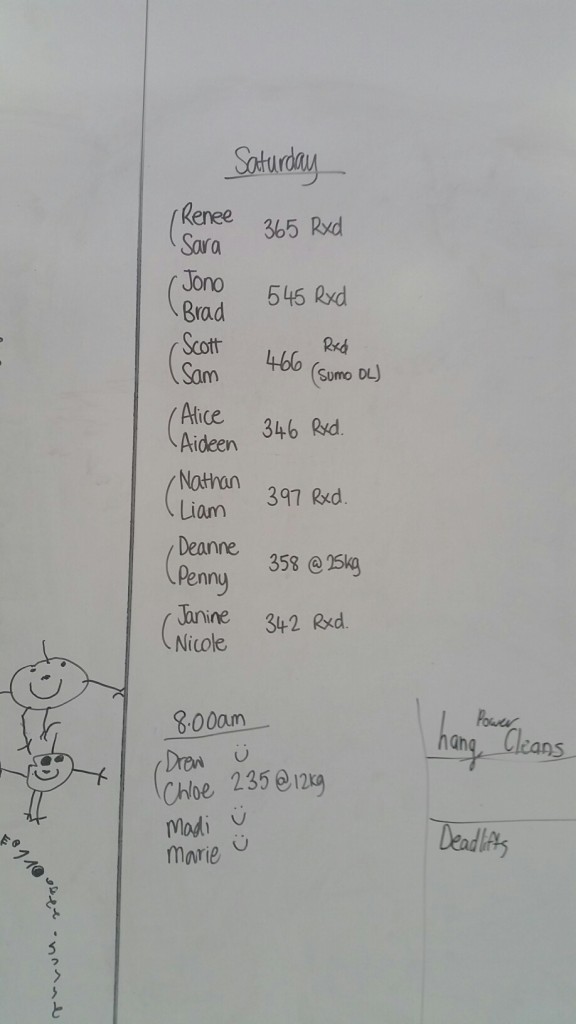 Saturday
Renee
Sara 365 Rxd
Jono
Brad 545 Rxd
Scott
Sam 466 Rxd (Sumo DL)
Alice
Aideen 346 Rxd.
Nathan
Liam 397 Rxd.
Deanne
Penny 358 @ 25kg
Janine
Nicole 342 Rxd.
8.00am
Drew
Chloe 235 @ 12kg
Madi
Marie
hang Power Cleans
Deadlifts